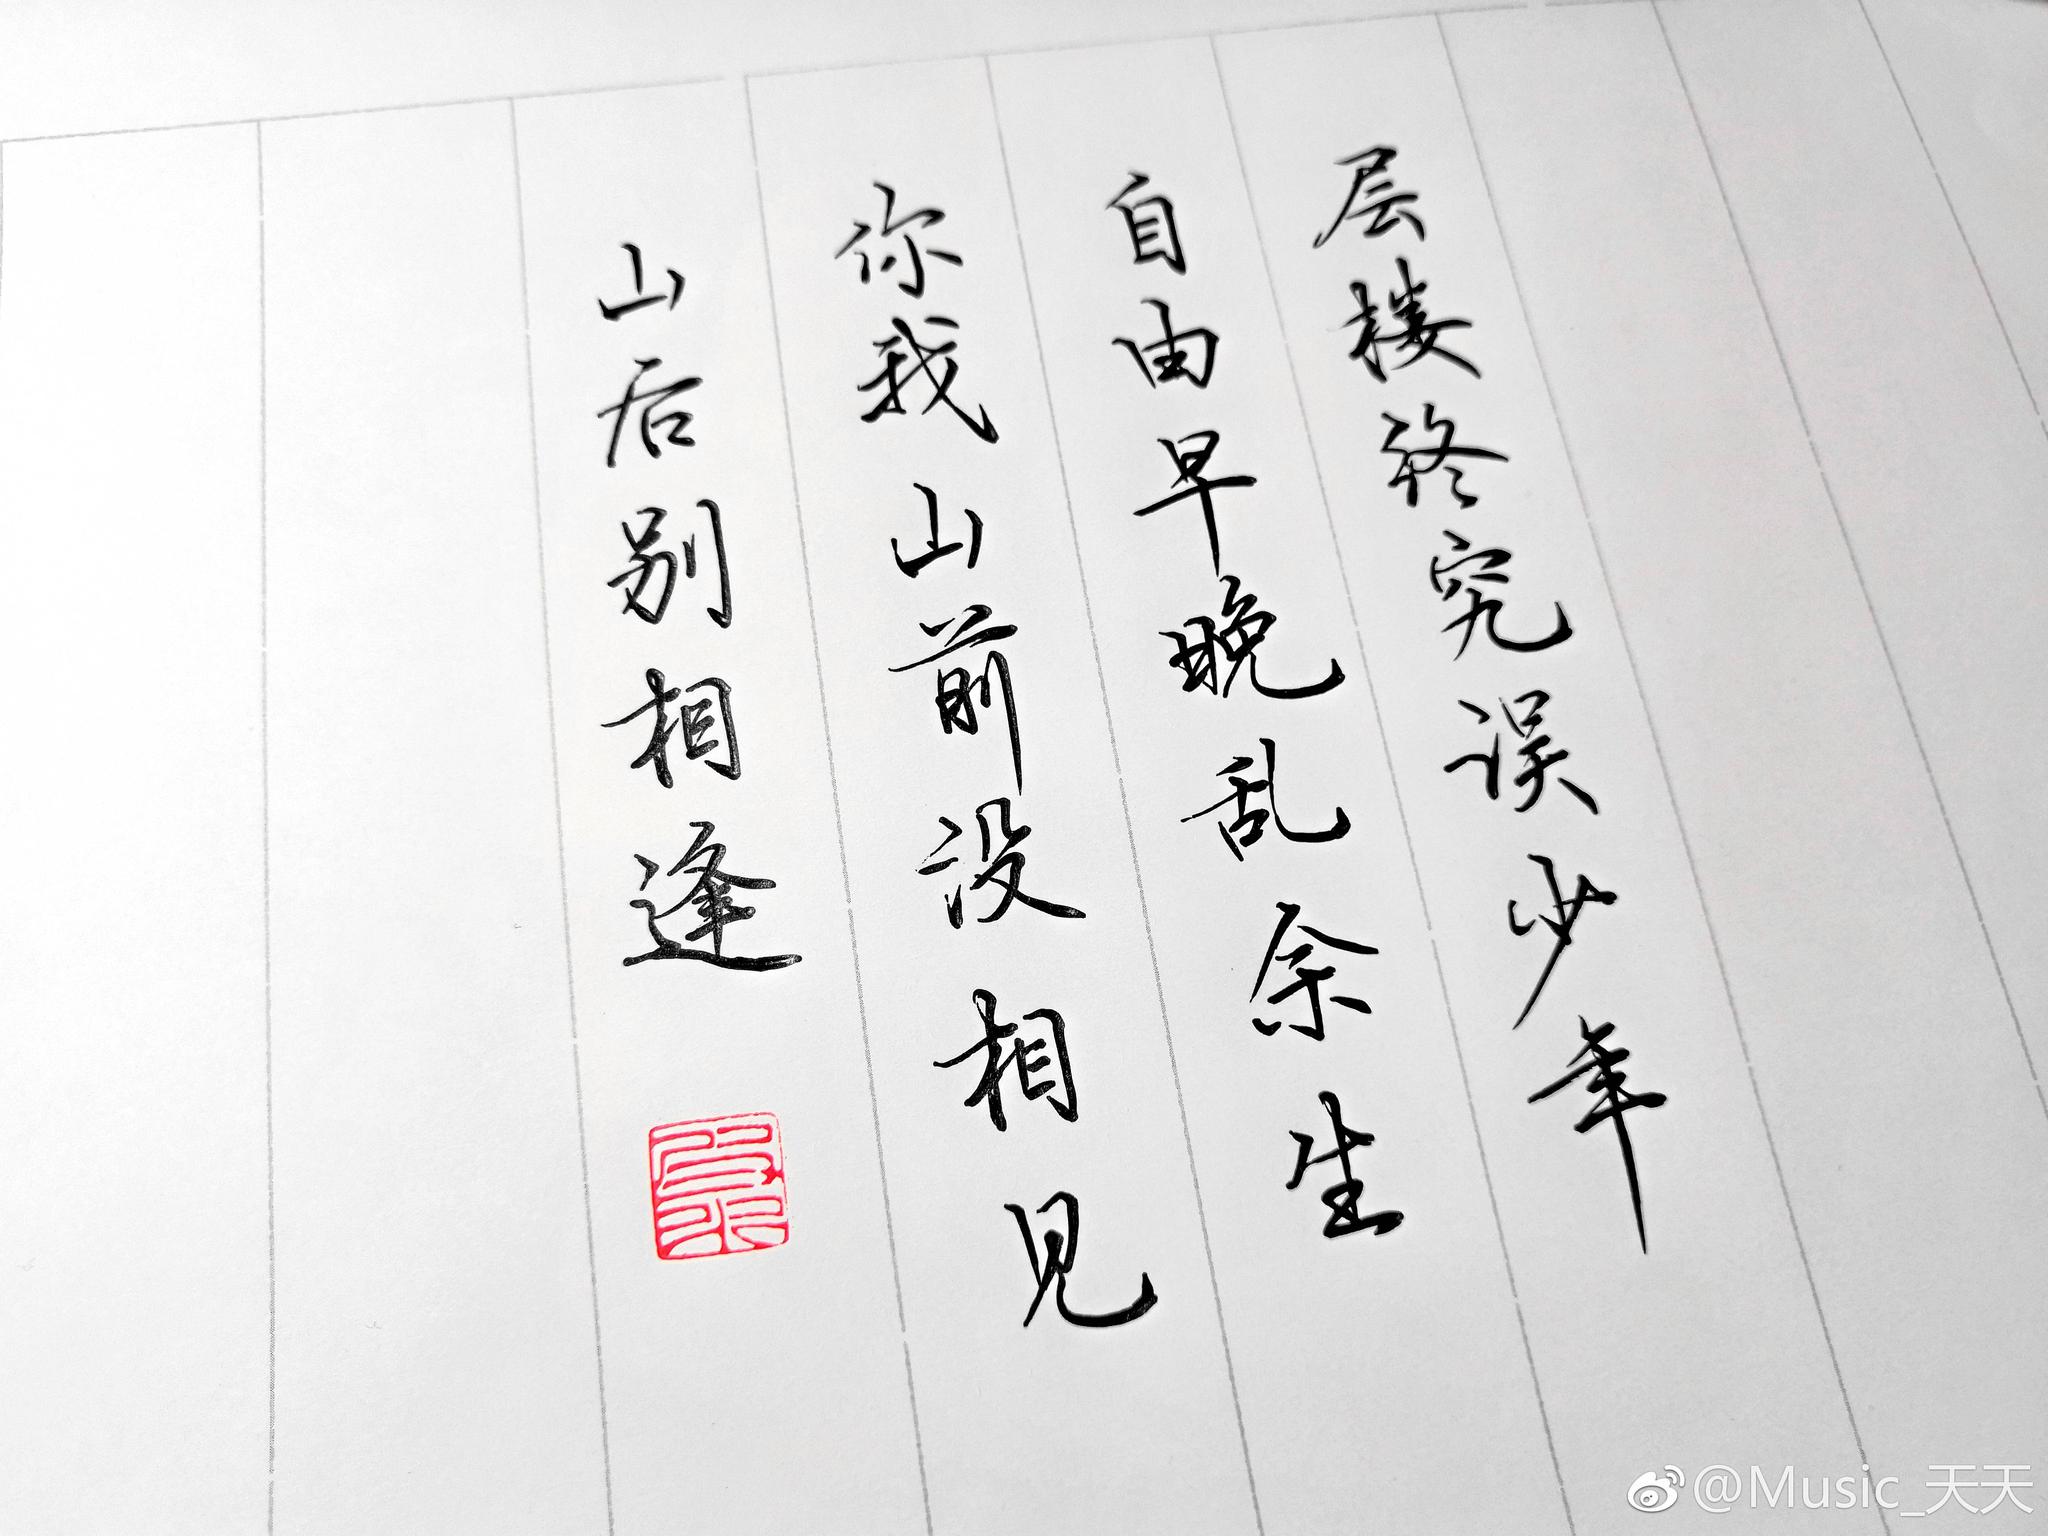 层楼终究误少年
自由早晚乱余生
你我山前没相见
山后别相逢
@Music_天天